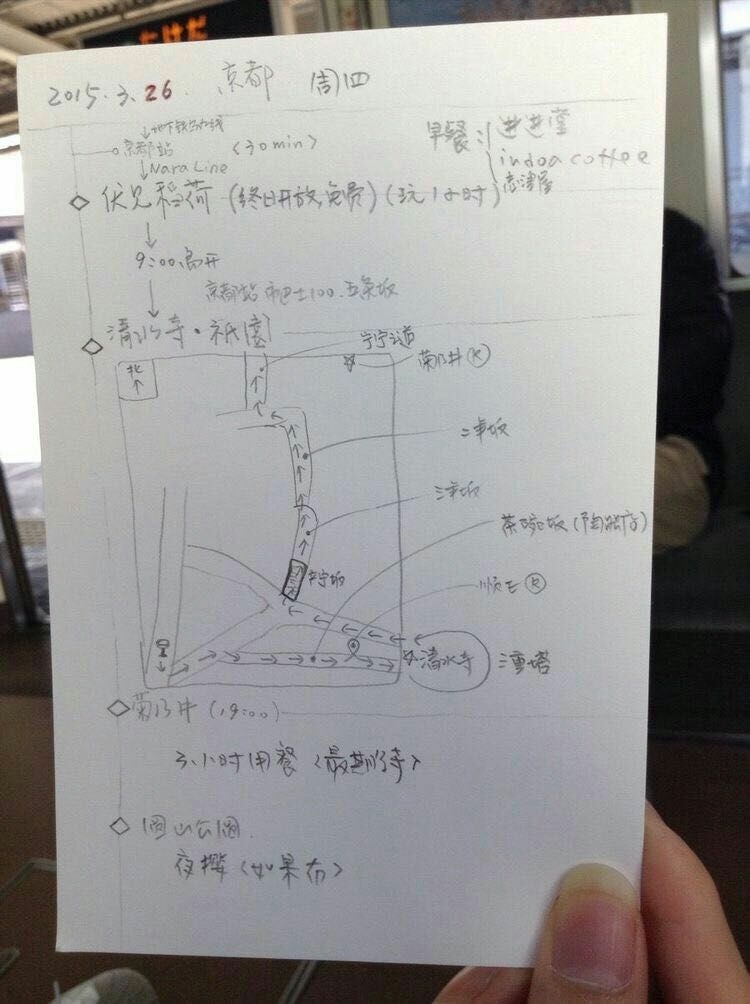 たけだ
2015.3.26. 京都 周四
京都站 (30min)
早餐: 进进堂
Nara Line
indoa coffee
志津屋
伏见稻荷 (终日开放免费)(玩1小时)
9:00离开
京都站 市巴士100 五条坂
清水寺·祇園
北
宁宁之道
菊乃井 R
二年坂
三年坂
茶碗坂
顺正 R
清水寺
三重塔
菊乃井 (19:00)
3小时用餐 (最期待)
圆山公园
夜樱 (如果有)